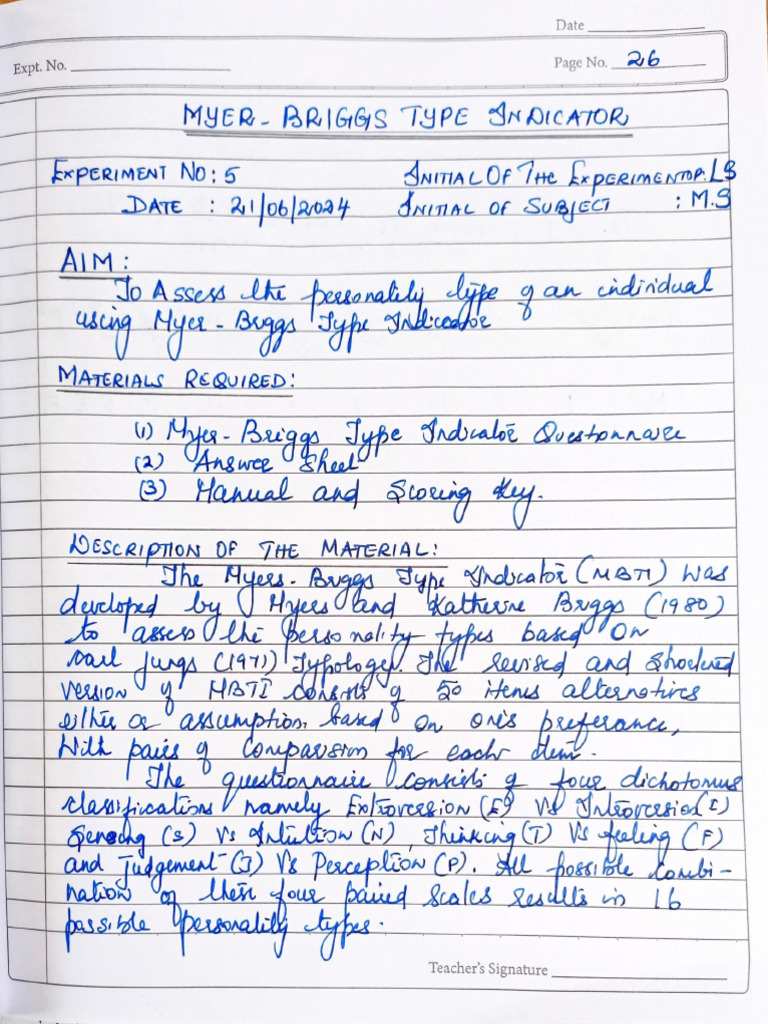 Date
Expt. No.
Page No. 26
MYER-BRIGGS TYPE INDICATOR
EXPERIMENT NO: 5 INITIAL OF THE EXPERIMENTOR: LS
DATE : 21/06/2024 INITIAL OF SUBJECT : M.S
AIM:
To Assess the personality type of an individual
using Myer-Briggs Type Indicator
MATERIALS REQUIRED:
(1) Myer-Briggs Type Indicator Questionnaire
(2) Answer Sheet
(3) Manual and Scoring Key.
DESCRIPTION OF THE MATERIAL:
The Myers-Briggs Type Indicator (MBTI) was
developed by Myers and Katherine Briggs (1980)
to assess the personality types based on
Carl Jungs (1971) Typology. The revised and shortened
version of MBTI consists of 50 items alternatives
either or assumption, based on one's preferance,
with pairs of comparison for each item.
The questionnaire consists of four dichotomus
classifications namely Extroversion (E) Vs Introversion (I)
Sensing (S) vs Intuition (N), Thinking (T) Vs feeling (F)
and Judgement (J) Vs Perception (P). All possible combi-
nation of their four paired scales results in 16
possible personality types.
Teacher's Signature